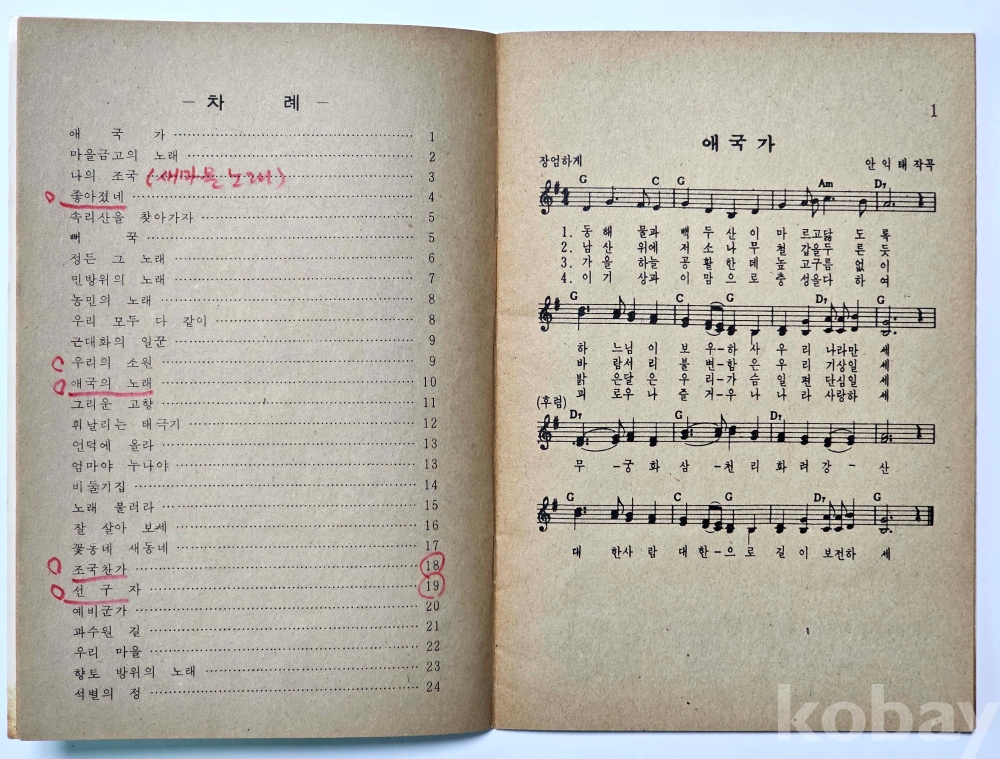 — 차 례 —
애 국 가 …… 1
마을금고의 노래 …… 2
나의 조국 (새마을노래) …… 3
좋아졌네 …… 4
속리산을 찾아가자 …… 5
뻐 꾹 …… 5
정든 그 노래 …… 6
민방위의 노래 …… 7
농민의 노래 …… 8
우리 모두 다 같이 …… 8
근대화의 일꾼 …… 9
우리의 소원 …… 9
애국의 노래 …… 10
그리운 고향 …… 11
휘날리는 태극기 …… 12
언덕에 올라 …… 13
엄마야 누나야 …… 13
비둘기집 …… 14
노래 불러라 …… 15
잘 살아 보세 …… 16
꽃동네 새동네 …… 17
조국찬가 …… 18
선 구 자 …… 19
예비군가 …… 20
과수원 길 …… 21
우리 마을 …… 22
향토 방위의 노래 …… 23
석별의 정 …… 24
1
애국가
장엄하게 안익태 작곡
G C G Am D7
1. 동 해 물과 백 두 산 이 마 르고닳 도 록
2. 남 산 위에 저 소 나 무 철 갑을두 른 듯
3. 가 을 하늘 공 활 한 데 높 고구름 없 이
4. 이 기 상과 이 맘 으 로 충 성을다 하 여
G C G D7 G
하 느 님 이 보 우-하 사 우 리 나라만 세
바 람서 리 불 변-함 은 우 리 기상일 세
밝 은달 은 우 리-가 슴 일 편 단심일 세
괴 로우 나 즐 거-우 나 나 라 사랑하 세
(후렴)
D7 G D7 G D7
무 -궁 화 삼 -천 리 화 려 강 - 산
G C G D7 G
대 한사 람 대 한-으 로 길 이 보전하 세
kobay